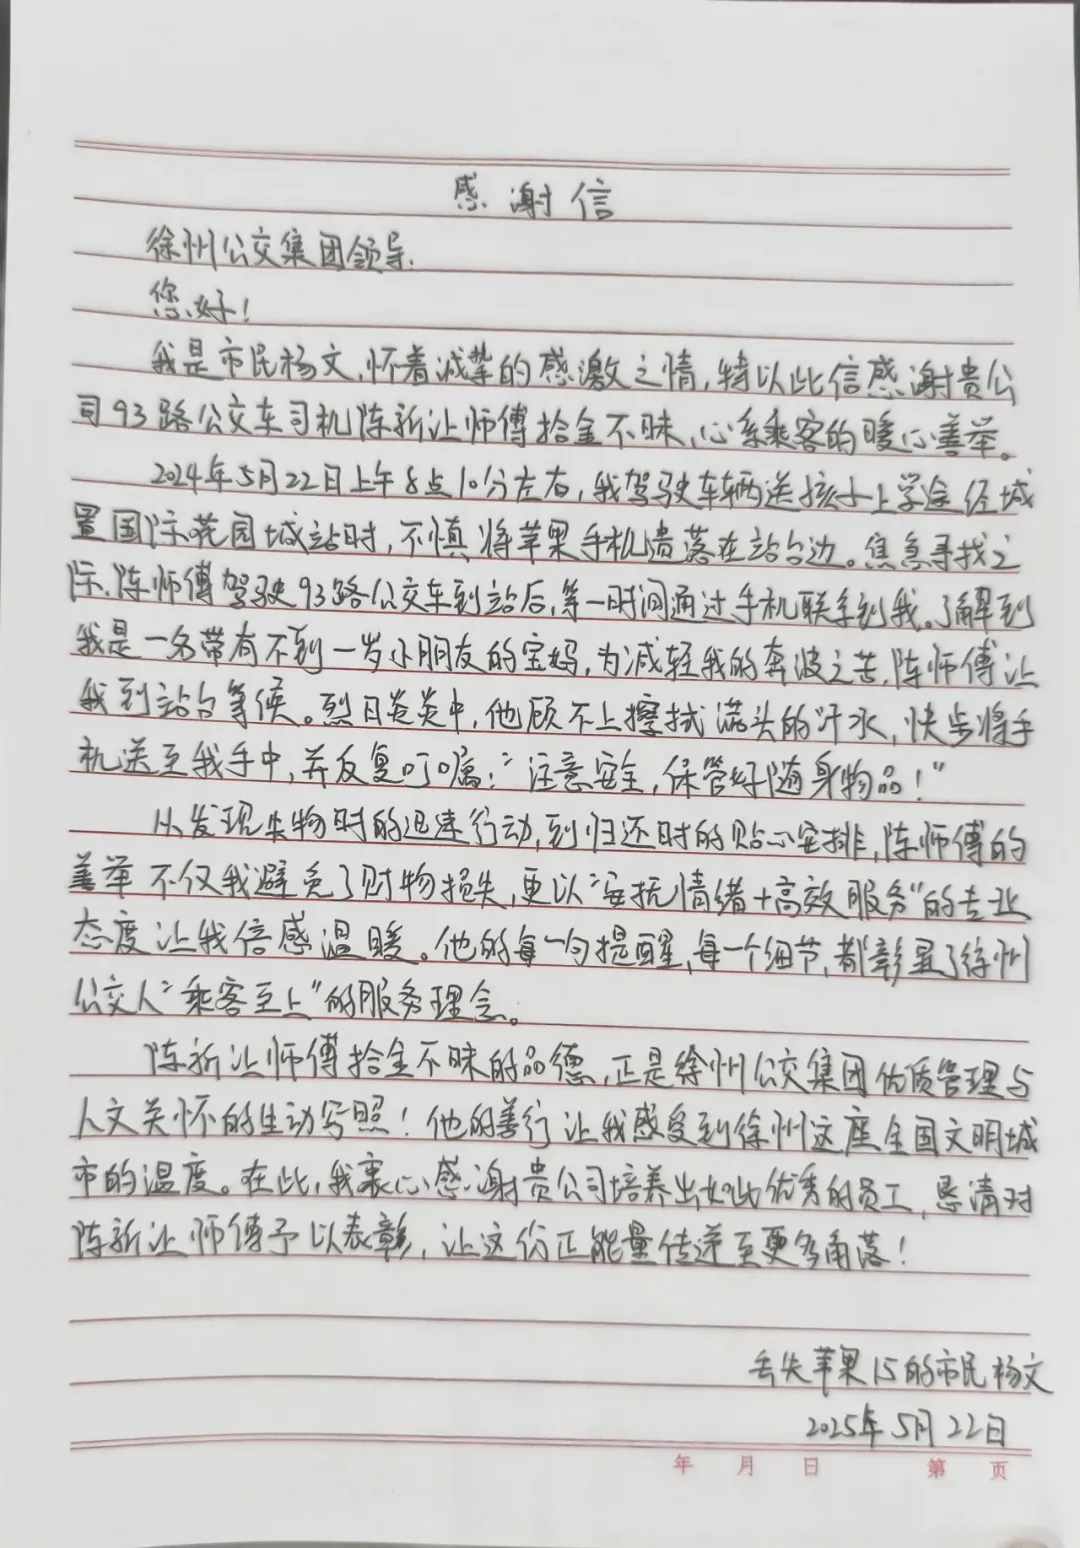 感谢信
徐州公交集团领导:
您好!
我是市民杨文,怀着诚挚的感激之情,特以此信感谢贵公
司93路公交车司机陈新让师傅拾金不昧、心系乘客的暖心善举。
2024年5月22日上午8点10分左右,我驾驶车辆送孩子上学途经城
置国际花园城站时,不慎将苹果手机遗落在站台边。焦急寻找之
际,陈师傅驾驶93路公交车到站后,第一时间通过手机联系到我。了解到
我是一名带有不到一岁小朋友的宝妈,为减轻我的奔波之苦,陈师傅让
我到站台等候。烈日炎炎中,他顾不上擦拭满头的汗水,快步将手
机送至我手中,并反复叮嘱:“注意安全,保管好随身物品!”
从发现失物时的迅速行动,到归还时的贴心安排,陈师傅的
善举不仅我避免了财物损失,更以“安抚情绪+高效服务”的专业
态度让我倍感温暖。他的每一句提醒,每一个细节,都彰显了徐州
公交人“乘客至上”的服务理念。
陈新让师傅拾金不昧的品德,正是徐州公交集团优质管理与
人文关怀的生动写照!他的善行让我感受到徐州这座全国文明城
市的温度。在此,我衷心感谢贵公司培养出如此优秀的员工,恳请对
陈新让师傅予以表彰,让这份正能量传递至更多角落!
丢失苹果15的市民杨文
2025年5月22日
年 月 日 第 页